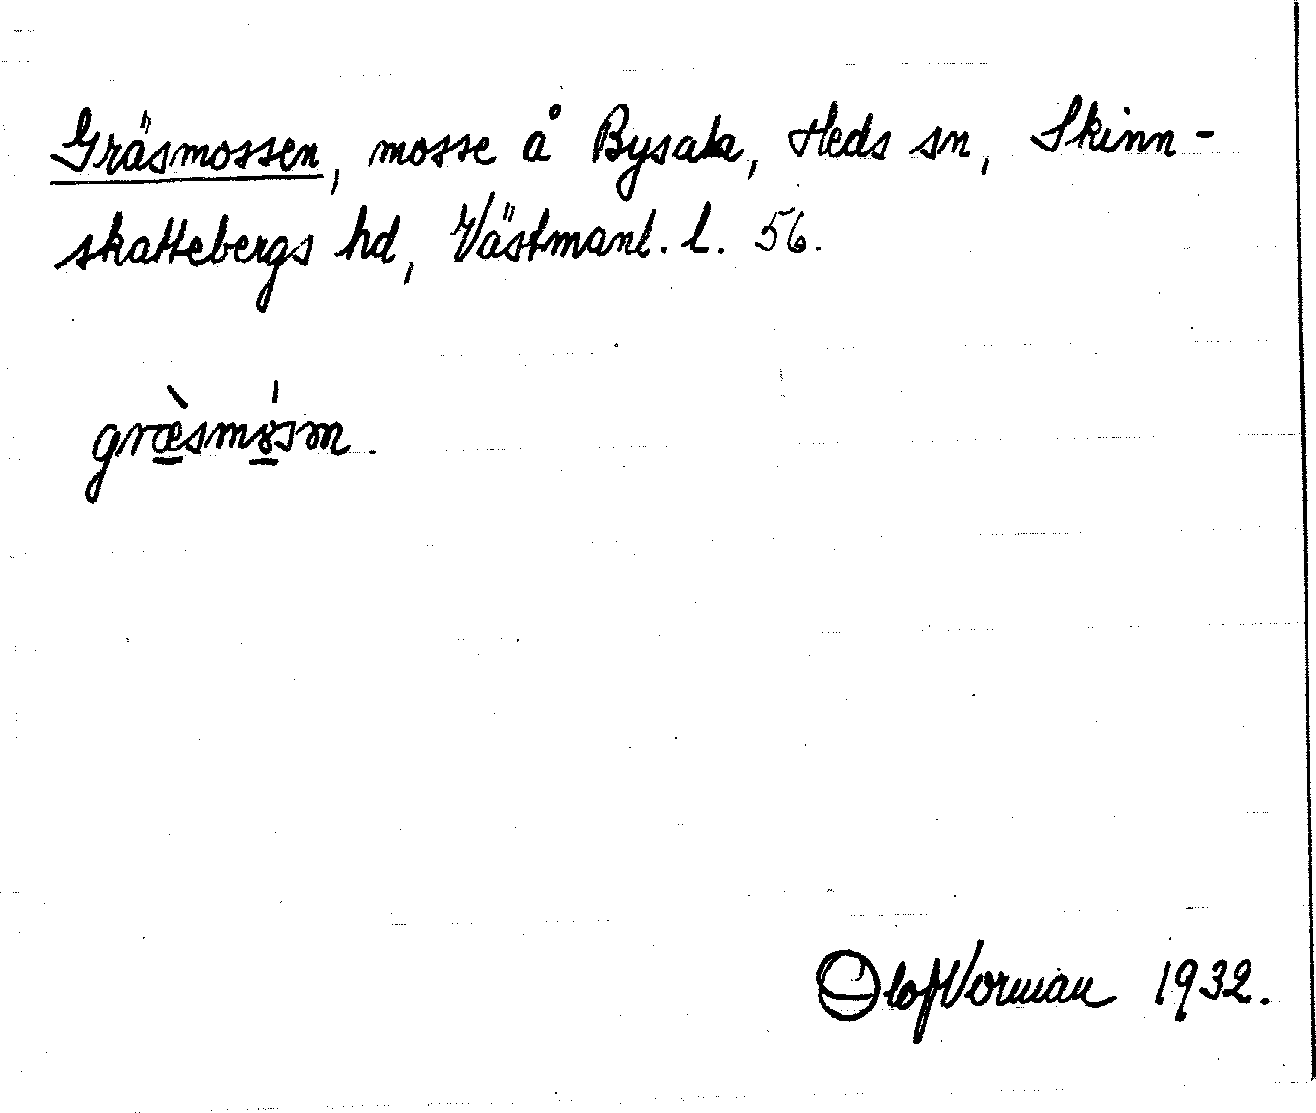 Gräsmossen, mosse å Bysala, Heds sn, Skinn-
skattebergs hd, Västmanl. l. 56.
græ̠̀smǿ̠sm.
Olof Vorman 1932.